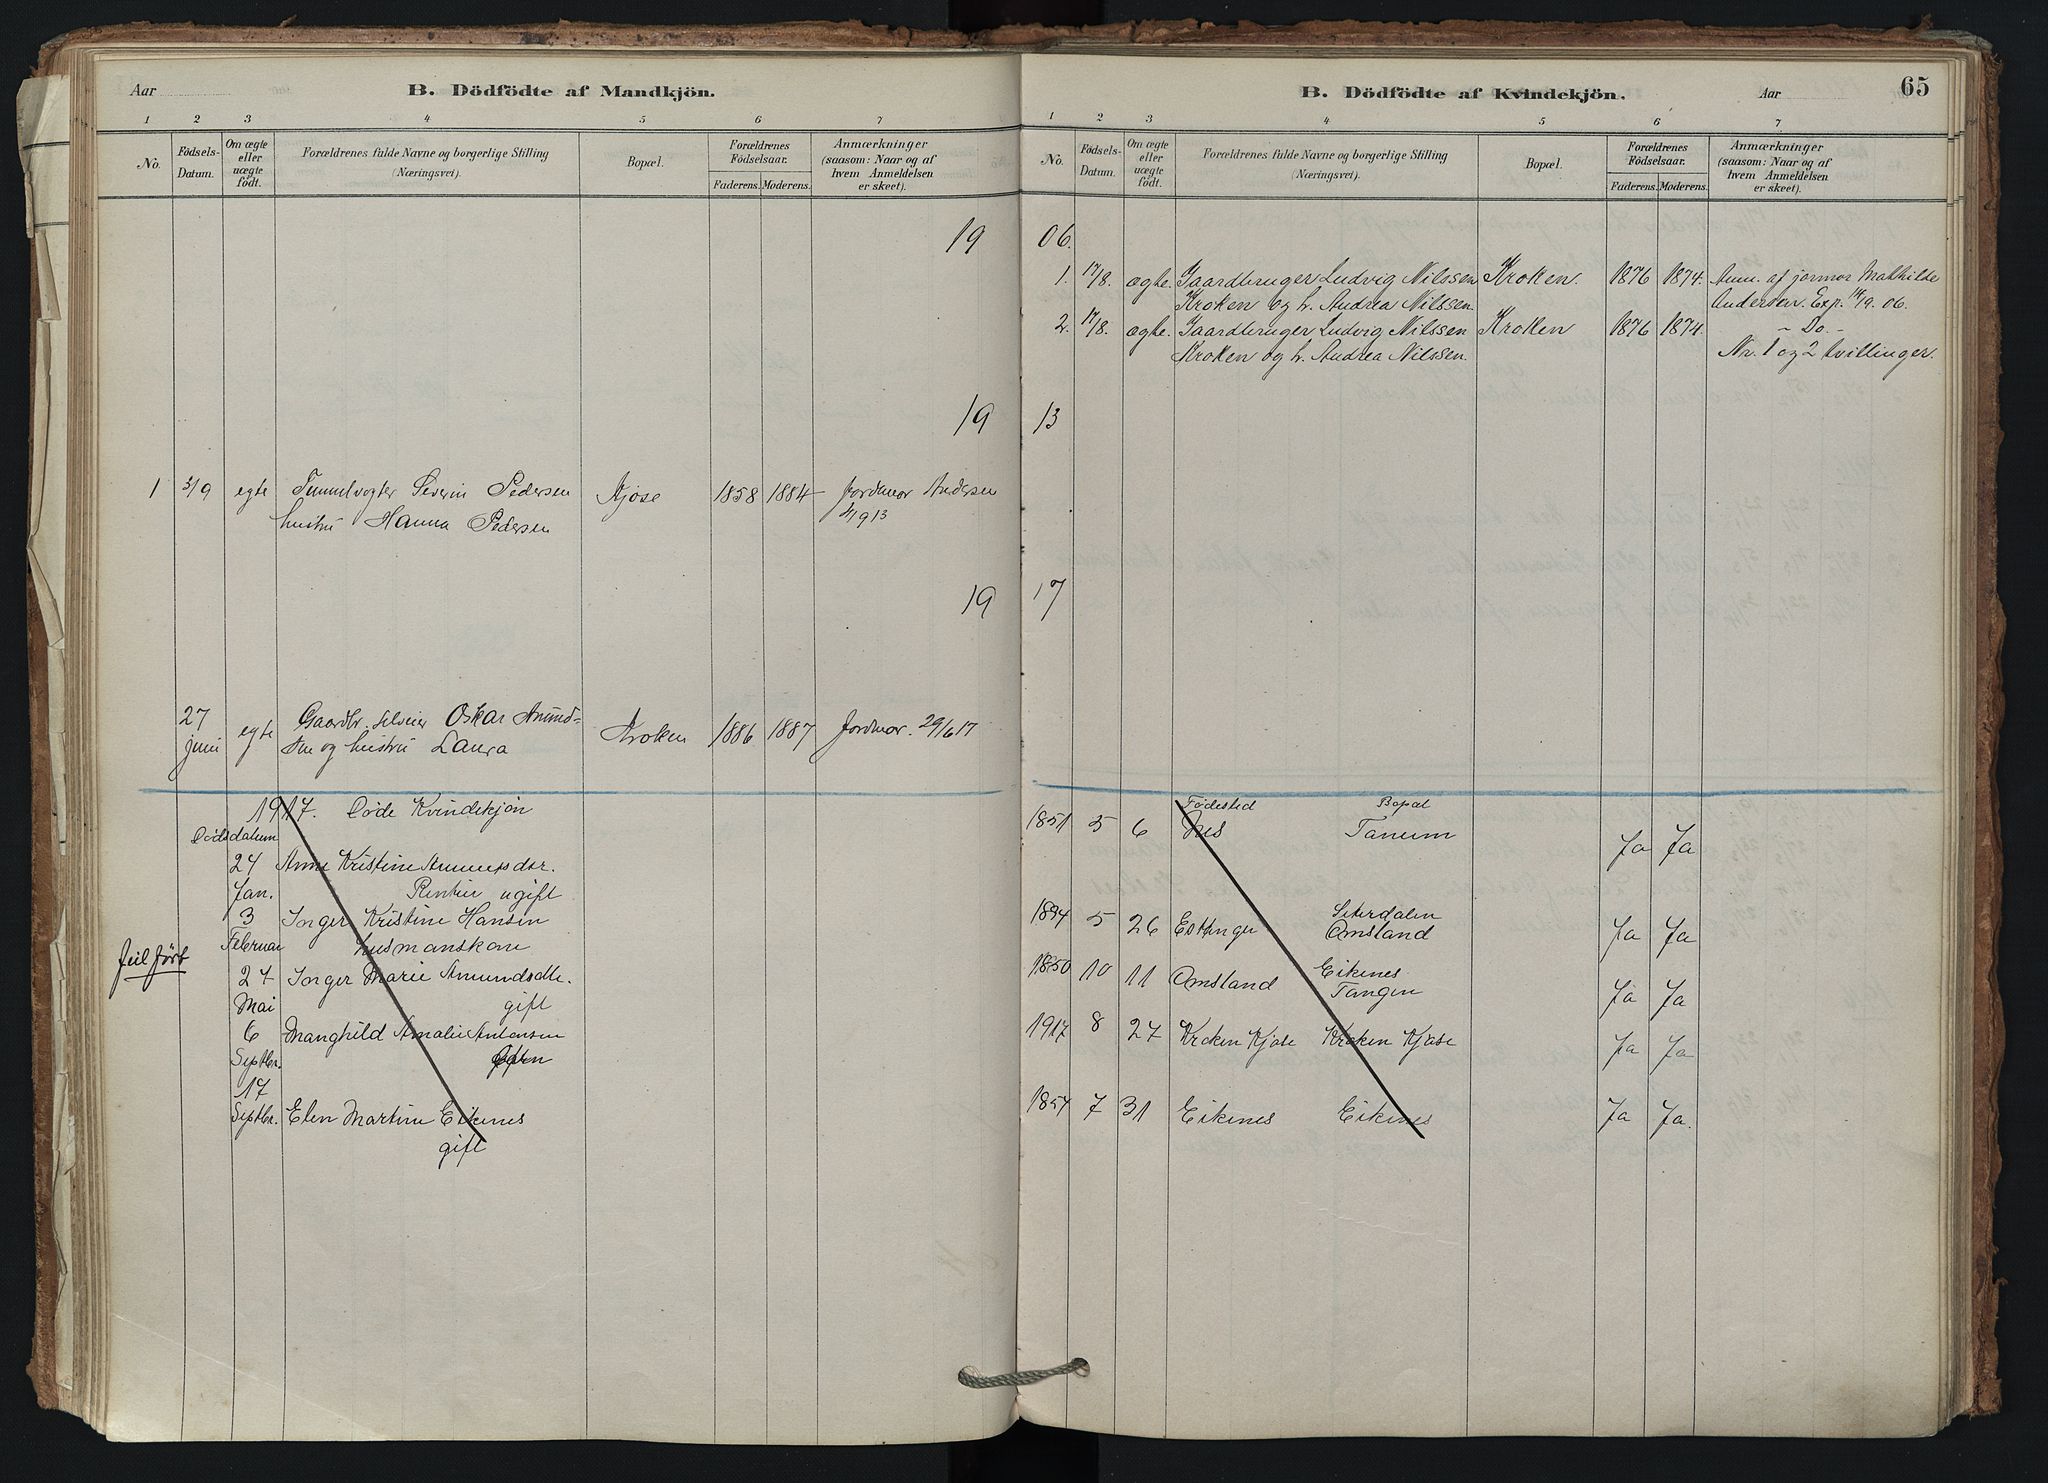 Aar
B. Dödfödte af Mandkjön.
1 2 3 4 5 6 7
No. Födsels-Datum. Om ægte eller uægte födt. Forældrenes fulde Navne og borgerlige Stilling (Næringsvei). Bopæl. Forældrenes Födselsaar. Faderens. Moderens. Anmærkninger (saasom: Naar og af hvem Anmeldelsen er skeet).
19
19
1 3/9 egte Tunnelvogter Severin Pedersen Kjose 1858 1884 Jordmor Andersen
hustru Hanna Pedersen 13
19
27 egte Gaardbr. Oskar Amund-
juni sen og hustru Laura Kroken 1886 1887 Jordmor. 29/6 17
1917. Døde Kvindekjøn
Dødsdatum
24 Anne Kristine
Jan. Rentier ugift
3 Inger Kristine Hansen
Februar husmanskone
feil ført
24 Inger Marie Amundsdtr.
Mai gift
6 Manghild Amalie Antonsen
Septbr.
17
Septbr. Elen Martine Eikenes
gift
65
B. Dödfödte af Kvindekjön.
Aar
1 2 3 4 5 6 7
No. Födsels-Datum. Om ægte eller uægte födt. Forældrenes fulde Navne og borgerlige Stilling (Næringsvei). Bopæl. Forældrenes Födselsaar. Faderens. Moderens. Anmærkninger (saasom: Naar og af hvem Anmeldelsen er skeet).
06.
1. 17/8. ægte. Gaardbruger Ludvig Nilssen Kroken. 1876 1874. Anm. af jormor Mathilde
Kroken og h. Andrea Nilssen. Andersen. Exp. 14/9. 06.
2. 17/8. ægte. Gaardbruger Ludvig Nilssen Kroken 1876 1874. - Do. -
Kroken og h. Andrea Nilssen. Nr. 1 og 2 tvillinger.
13
17
Fødested Bopæl
1851 5 6 Tanum Ja Ja
1894 5 26 Seterdalen
Omsland Ja Ja
1850 10 11 Omsland Eikenes
Tangen Ja Ja
1917 8 27 Kroken Kjose Kroken Kjose Ja Ja
1854 7 31 Eikenes Eikenes Ja Ja.